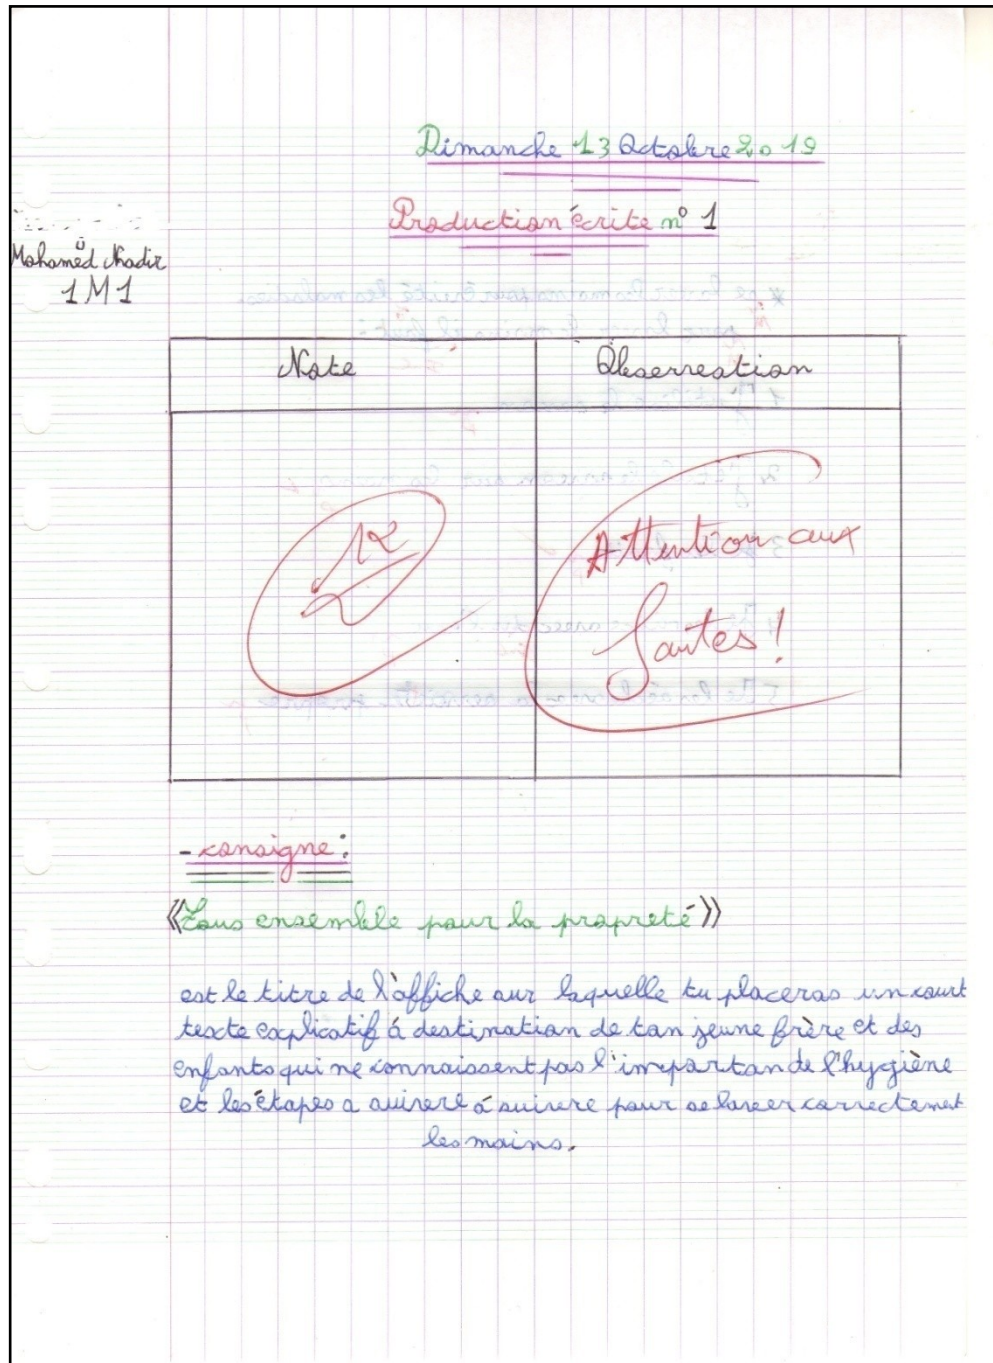 Dimanche 13 Octobre 2019
Production écrite n° 1
Mohamed Nadir
1M1
Note Observation
12 Attention aux
fautes!
- consigne :
«Tous ensemble pour la propreté»
est le titre de l'affiche sur laquelle tu placeras un court
texte explicatif á destination de ton jeune frère et des
enfants qui ne connaissent pas l'importan de l'hygiène
et les étapes a suivre á suivre pour se laver correctement
les mains.